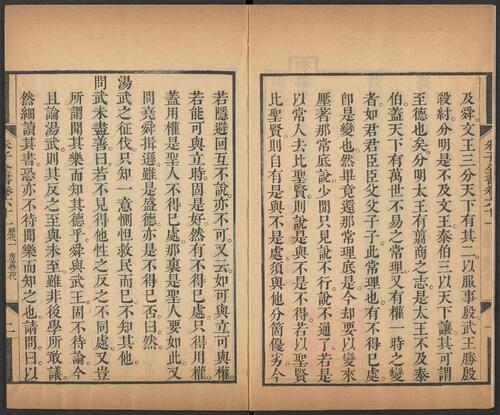 及舜。文王三分天下有其二以服事殷武王勝殷
殺紂。分明是不及文王。泰伯三以天下讓。其可謂
至德也矣。分明太王有翦商之志。是太王不及泰
伯蓋天下有萬世不易之常理。又有權一時之變
者如君君臣臣父父子子此常理也有不得已處。
卽是變也。然畢竟還那常理底是。今却要以變來
壓著那常底說少閒只見說不行。說不通了。若是
以常人去比聖賢。則說是與不是不得。若以聖賢
比聖賢則自有是與不是處。須與他分箇優劣今
若隱避回互不說亦不可。又云如可與立可與權。
若能可與立時固是好。然有不得已處。只得用權
蓋用權是聖人不得已處。那裏是聖人要如此。又
問堯舜揖遜雖是盛德。亦是不得已否曰然。
湯武之征伐。只知一意惻怛救民而已不知其他。
問武未盡善曰若不見得他性之反之不同處又豈
所謂聞其樂而知其德乎舜與武王固不待論今
且論湯武則其反之至與未至雖非後學所敢議。
然細讀其書恐亦不待聞樂而知之也請問曰以
二